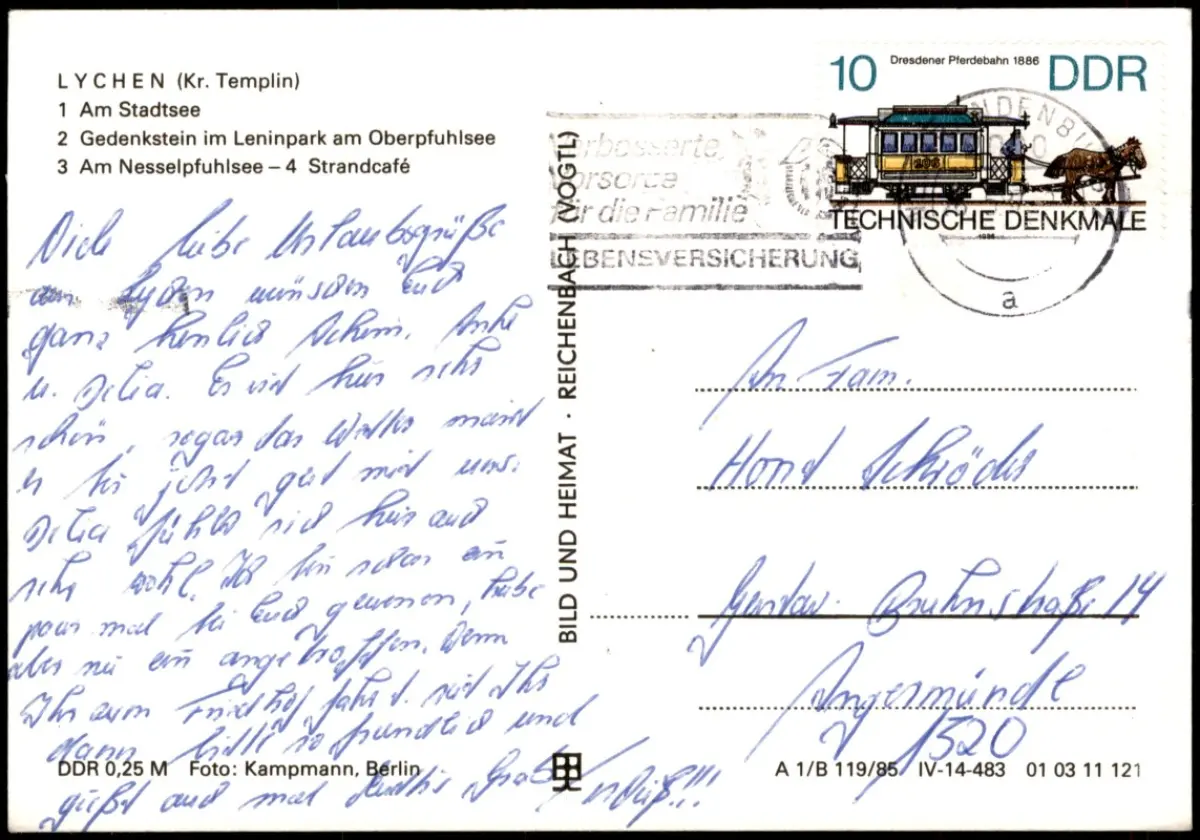 LYCHEN (Kr. Templin)
1 Am Stadtsee
2 Gedenkstein im Leninpark am Oberpfuhlsee
3 Am Nesselpfuhlsee – 4 Strandcafé
10 Dresdener Pferdebahn 1886 DDR
206
TECHNISCHE DENKMALE
1986
Verbesserte
Vorsorge
für die Familie
LEBENSVERSICHERUNG
a
Viele liebe Urlaubsgrüße
aus Lychen wünschen Euch
ganz herzlich Achim, Anke
u. Delia. Es ist hier sehr
schön, sogar das Wetter meint
es bis jetzt gut mit uns.
Delia fühlt sich hier auch
sehr wohl. Ich bin schon ein
paar mal bei Euch gewesen, habe
aber nie ein angetroffen. Wenn
Ihr zum Friedhof fahrt, seid Ihr
dann bitte so freundlich und
gießt auch mal
BILD UND HEIMAT · REICHENBACH (VOGTL)
An Fam.
Horst Schröder
Gustav-Bruhnstraße 14
Angermünde
1320
DDR 0,25 M Foto: Kampmann, Berlin
A 1/B 119/85 IV-14-483 01 03 11 121